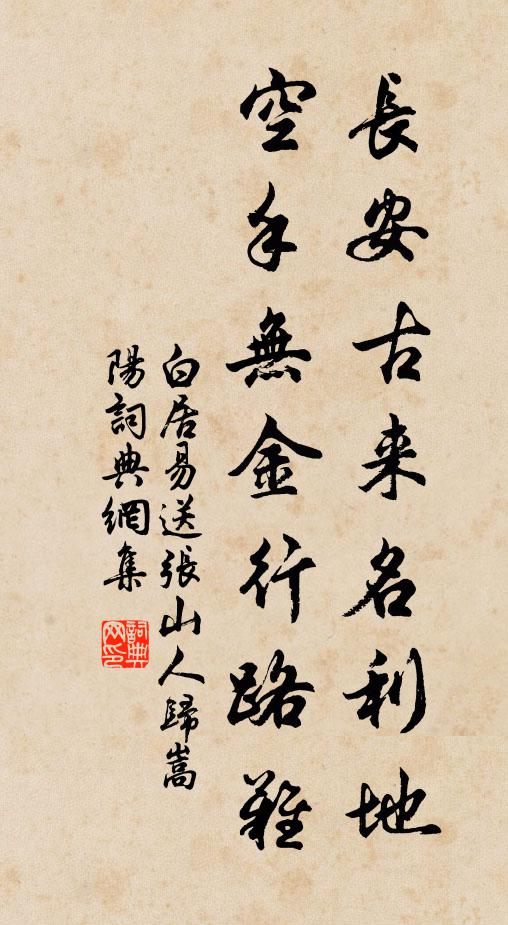 長安古来名利地
空手無金行路難
白居易送張山人歸嵩
陽詞典網集
詞典
网印